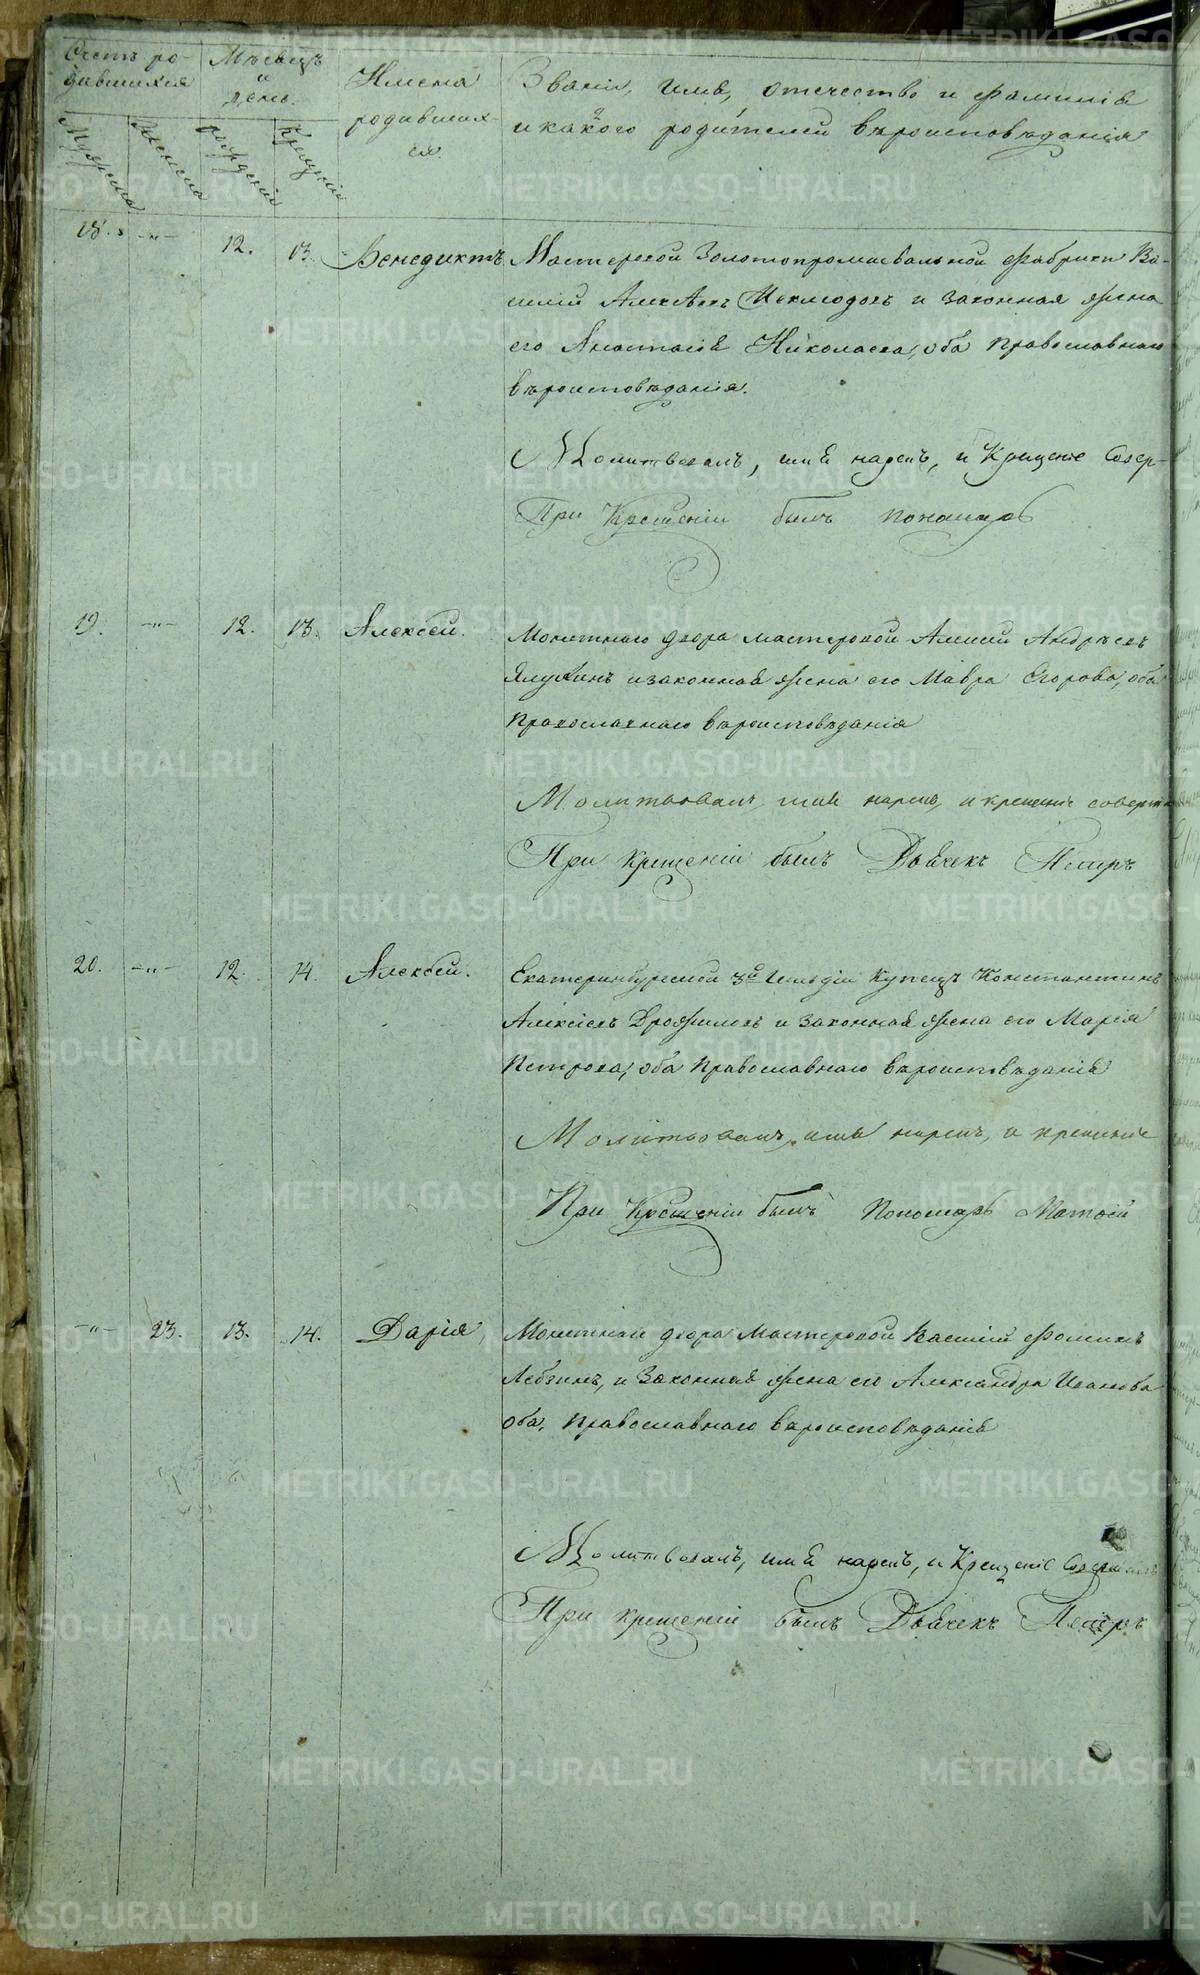 Счетъ ро-
дившихся
Мѣсяцъ
и
день.
Имена
родивших-
ся.
Званіе, имя, отечество и фамилія
и какого родителей вѣроисповѣданія
Мужеска.
Женска
рожденія
Крещенія
18. -"- 12. 13. Венедиктъ Мастеровой Золотопромывальной фабрики Ва-
силій Алексѣевъ и законная жена
его Анастасія Николаева, оба Православнаго
вѣроисповѣданія.
Молитвовалъ, имя нарекъ, и Крещеніе Совер-
При Крещеніи былъ пономарь
19. -"- 12. 13. Алексѣй. Монетнаго двора мастеровой Андрѣевъ
и законная жена его Мавра Егорова, оба
Православнаго вѣроисповѣданія
Молитвовалъ, имя нарекъ, и крещеніе соверши
При крещеніи былъ Дьячекъ Петръ
20. -"- 12. 14. Алексѣй. Екатеринбургской 3й Гильдіи Купецъ Константинъ
Алексѣевъ и законная жена его Марія
Петрова, оба Православнаго вѣроисповѣданія
Молитвовалъ, имя нарекъ, и крещеніе
При Крещеніи былъ Пономарь Матвей
-"- 23. 13. 14. Дарія, Монетнаго двора Мастеровой Василій Фоминъ
и Законная жена его Александра Иванова
оба, Православнаго вѣроисповѣданія
Молитвовалъ, имя нарекъ, и Крещеніе Соверши
При крещеніи былъ Дьячекъ Петръ
METRIKI.GASO-URAL.RU